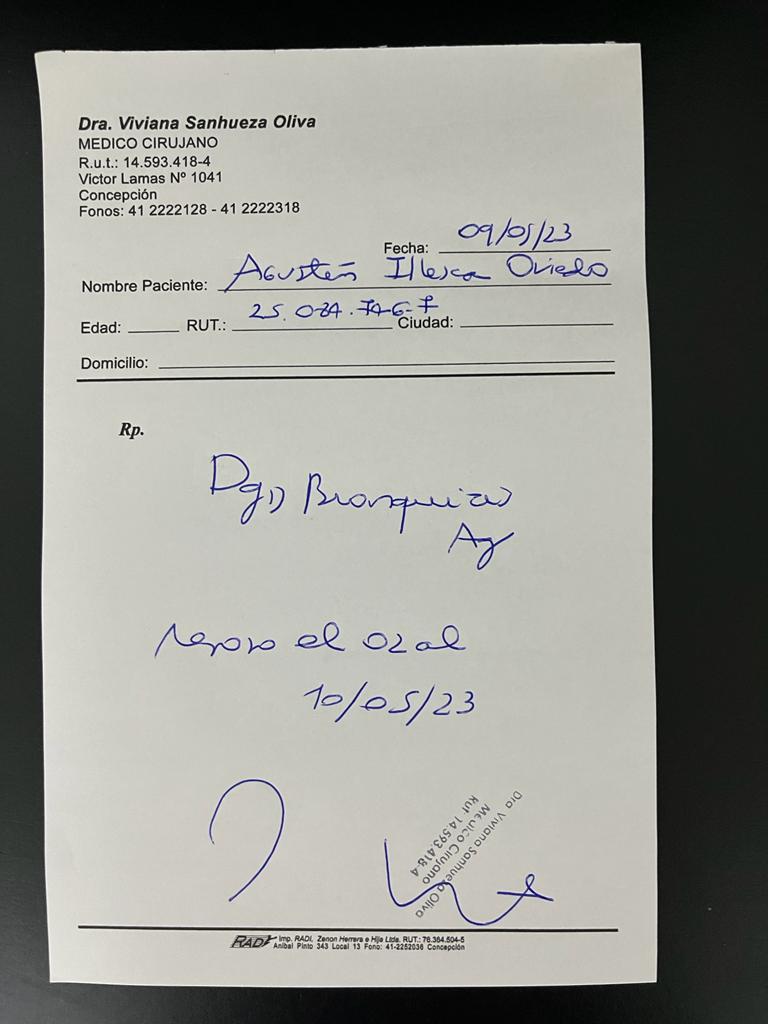 Dra. Viviana Sanhueza Oliva
MEDICO CIRUJANO
R.u.t.: 14.593.418-4
Victor Lamas Nº 1041
Concepción
Fonos: 41 2222128 - 41 2222318
Fecha: 09/05/23
Nombre Paciente: Agustín Illesca Oviedo
Edad: RUT.: 25. Ciudad:
Domicilio:
Rp.
Dg)
Reposo el 02 al
10/05/23
Dra Viviana Sanhueza Oliva
Medico Cirujano
Rut 14.593.418-4
RADI Imp. RADI, Zenon Herrera e Hija Ltda. RUT.: 76.364.504-5
Anibal Pinto 343 Local 13 Fono: 41-2252036 Concepción